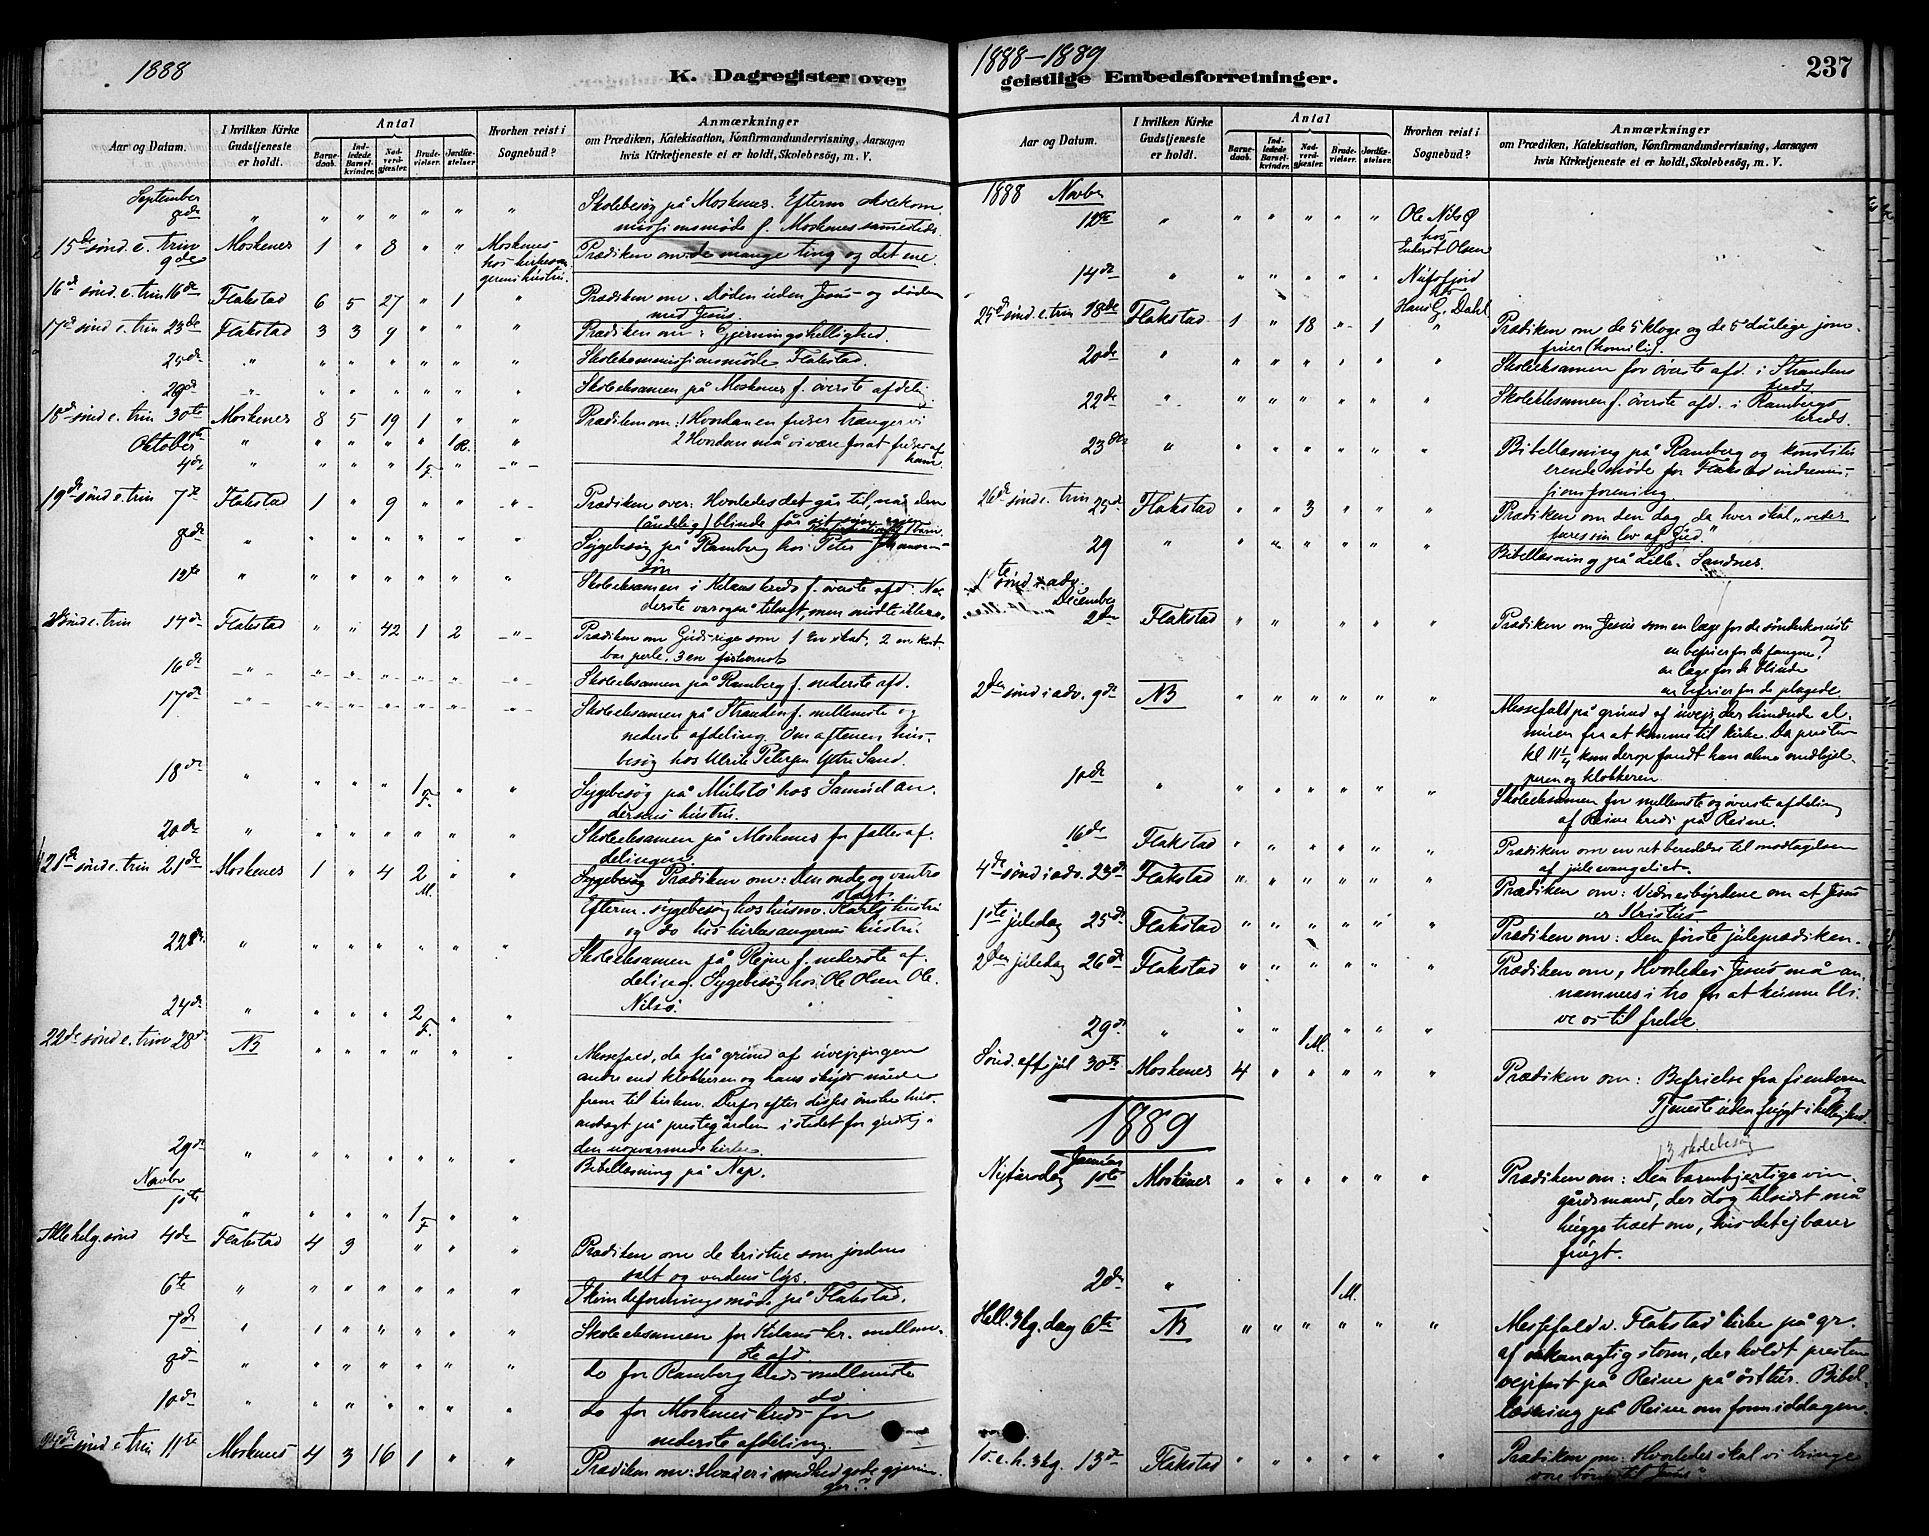 1888
K. Dagregister over
Aar og Datum.
I hvilken Kirke Gudstjeneste er holdt.
Antal
Barnedaab.
Indledede Barselkvinder.
Nadverdgjester.
Brudevielser.
Jordfæstelser.
Hvorhen reist i Sognebud?
Anmærkninger
om Prædiken, Katekisation, Konfirmandundervisning, Aarsagen
hvis Kirketjeneste ei er holdt, Skolebesög, m. V.
September
8de " " " " " " " Skolebesøg på Moskenes. Efterm skolekom
missionsmøde f. Moskenes sammesteds.
15de sönd. e. trin 9de Moskenes 1 " 8 " " Moskenes hos kirkesangerens hustru. Prædiken om: de mange ting og det ene.
16de sönd. e. trin 16de Flakstad 6 5 27 " 1 " Prædiken om: Døden uden Jesus og døden
med Jesus.
17de sönd e. trin 23de Flakstad 3 3 9 " " " Prædiken om: Gjerningshellighed.
25de " " " " " " " Skolekommissionsmøde Flakstad.
29de " " " " " " " Skoleeksamen på Moskenes f. överste afdeling.
18de sönd e. trin 30te Moskenes 8 5 19 1 " " Prædiken om: 1 Hvordan en frelser trænger vi
2 Hvordan må vi være for at frelses af ham.
Oktober 1ste " " " " " 1 R. "
4de " " " " 1 F. " "
19de sönd e. trin 7de Flakstad 1 " 9 " " " Prædiken over: Hvorledes det går til når den
(åndelig) blinde får sit syn
8de " " " " " " " Sygebesøg på Ramberg hos Peter Johannes-
søn
12te " " " " " " " Skoleeksamen i Kilans kreds f. överste afd. Ne
derste var også tilsagt, men mödte ikke
20de sönd e. trin 14de Flakstad " " 42 1 2 " Prædiken om Guds rige som 1 en skat, 2 en kost-
bar perle, 3 en fiskernot
16de " " " " " " " Skoleeksamen på Ramberg f. nederste afd.
17de " " " " " " " Skoleeksamen på Stranden f. mellemste og
nederste afdeling. Om aftenen hus-
besøg hos Ulrik Petersen Ytre Sand.
18de " " " " 1 F. " " Sygebesøg på Mulstø hos Samuel An-
dersens hustru.
20de " " " " " " " Skoleeksamen på Moskenes for fælles af-
delingen.
21de sönd e. trin 21de Moskenes 1 " 4 2 M. " " Prædiken om: Den onde og vantro
slægt.
Efterm. sygebesøg hos husm. Karls hustru
og do hos kirkesangerens hustru.
22de " " " " " " " Skoleeksamen på Rejne f. nederste af-
deling. Sygebesøg hos Ole Olsen Ole
Nilsø.
24de " " " " 2 F. " "
22de sönd e. trin 28de NB " " " " " " Messefald, da på grund af uvejr ingen
andre end klokkeren og hans skyds nåede
frem til kirken. Derfor efter disses ønske hus-
andagt på prestegården i stedet for gudstj. i
den uopvarmede kirke.
29de " " " " " " " Bibellæsning på Nap.
Novbr
1ste " " " " 1 F " "
Alle helg. sönd 4de Flakstad 4 3 " " " Prædiken om de kristne som jordens
salt og verdens lys.
6te " " " " " " " deforeningsmøde på Flakstad.
7de " " " " " " " Skoleeksamen for Kilans kr. mellem-
ste afd.
8de " " " " " " " do for Ramberg kreds mellemste
do
10de " " " " " " " do for Moskenes kreds for
nederste afdeling.
24de sönd e. trin 11te Moskenes 4 3 16 1 " " Prædiken om: Hvad er i sandhed gode gjernin-
ger?
1888-1889
geistlige Embedsforretninger.
237
Aar og Datum.
I hvilken Kirke Gudstjeneste er holdt.
Antal
Barnedaab.
Indledede Barselkvinder.
Nadverdgjester.
Brudevielser.
Jordfæstelser.
Hvorhen reist i Sognebud?
Anmærkninger
om Prædiken, Katekisation, Konfirmandundervisning, Aarsagen
hvis Kirketjeneste ei er holdt, Skolebesög, m. V.
1888 Novbr
12te " " " " " " Ole Nilsø hos Enkerst Olsen
14de " " " " " " Nusfjord hos Hans G. Dahl
25de sönd. e. trin 18de Flakstad 1 " 18 " 1 " Prædiken om de 5 kloge og de 5 dårlige jom-
fruer (homili).
20de " " " " " " " Skoleeksamen for överste afd. i Strandens
kreds
22de " " " " " " " Skoleeksamen f. överste afd. i Rambergs
kreds.
23de " " " " " " " Bibellæsning på Ramberg og konstitu
erende møde for Flakstad indremis-
sionsforening.
26de sönd e. trin 25de Flakstad " " 3 " " " Prædiken om den dag da hver skal "veder
fares sin lov af Gud."
29 " " " " " " " Bibellæsning på Lille-Sandnes.
1ste sönd i adv. December 2den Flakstad " " " " " " Prædiken om Jesus som en læge for de sønderknuste
en befrier for de fangne og
en læge for de blinde
en befrier for de plagede.
2den sönd i adv. 9de NB " " " " " " Messefald på grund af uvejr, der hindrede al-
muen fra at komme til kirke. Da presten
kl 11 1/4 kom derop fandt han alene medhjæl-
peren og klokkeren.
10de " " " " " " " Skoleeksamen for mellemste og överste afdeling
af Reine kreds på Reine.
16de Flakstad " " " " " " Prædiken om en ret beredelse til modtagelsen
af juleevangeliet.
4de sönd i adv. 23de Flakstad " " " " " " Prædiken om: Vidnesbyrdene om at Jesus
er Kristus
1ste juledag 25de Flakstad " " " " " " Prædiken om: Den förste juleprædiken.
2den juledag 26de Flakstad " " " " " " Prædiken om, Hvorledes Jesus må an-
nammes i tro for at kunne bli-
ve os til frelse
29de " " " 1 M. " " "
Sönd. eft. jul 30te Moskenes 4 " " " " " Prædiken om: Befrielse fra fienderne
og
Tjeneste uden frygt i hellighed.
1889
13 skolebesøg
Nytårsdag Januar 1ste Moskenes " " " " " " Prædiken om: Den barmhjertige vin-
gårdsmand, der dog tilsidst må
hugge træet om, hvis det ej bærer
frugt.
2de " " " " 1 M.
Hell. 3 kg. dag 6te NB " " " " " " Messefald v. Flakstad kirke på gr.
af orkanagtig storm, der holdt presten
vejrfast på Reine på østtur. Bibel-
læsning på Reine om formiddagen.
1 s. e. h. 3 kg. 13de Flakstad " " " " " " Prædiken om: Hvorledes skal vi bringe
vore börn til Jesus